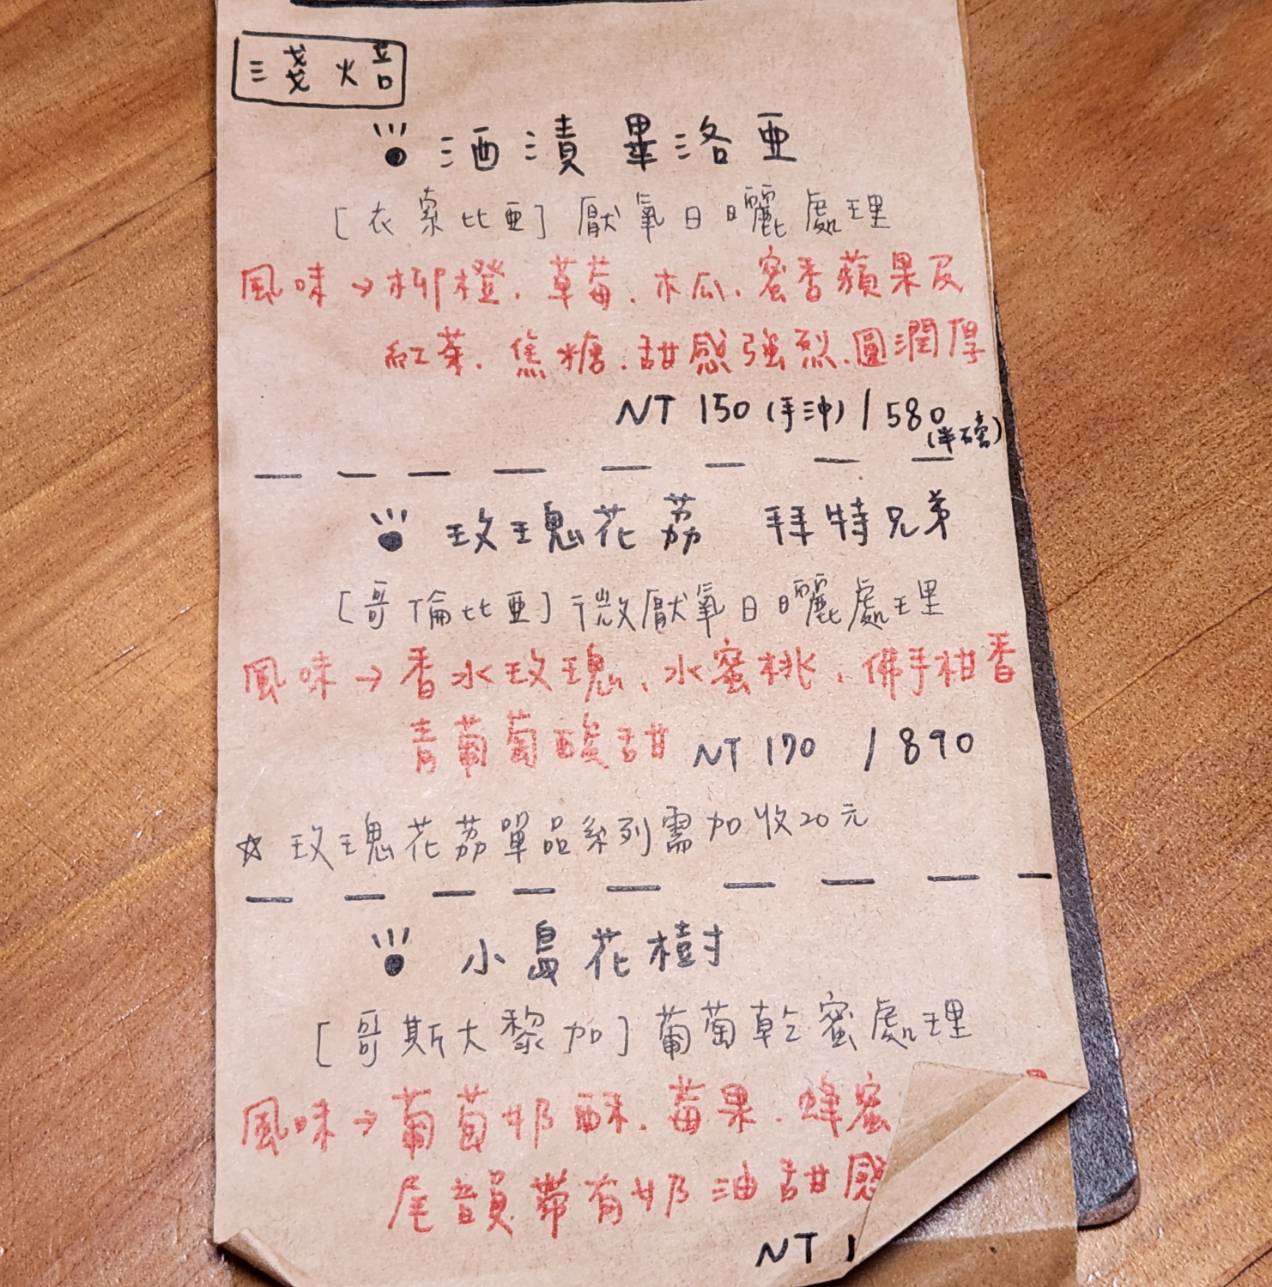 淺焙
酒漬畢洛亞
[衣索比亞] 厭氧日曬處理
風味→柳橙、草莓、木瓜、蜜香蘋果及
紅茶、焦糖、甜感強烈、圓潤厚
NT 150 (手沖) / 580 (半磅)
玫瑰花荔 拜特兄弟
[哥倫比亞] 微厭氧日曬處理
風味→香水玫瑰、水蜜桃、佛手柑香
青葡萄酸甜 NT 170 / 890
☆ 玫瑰花荔單品系列需加收20元
小島花樹
[哥斯大黎加] 葡萄乾蜜處理
風味→葡萄奶酥、莓果、蜂蜜
尾韻帶有奶油甜感
NT 1